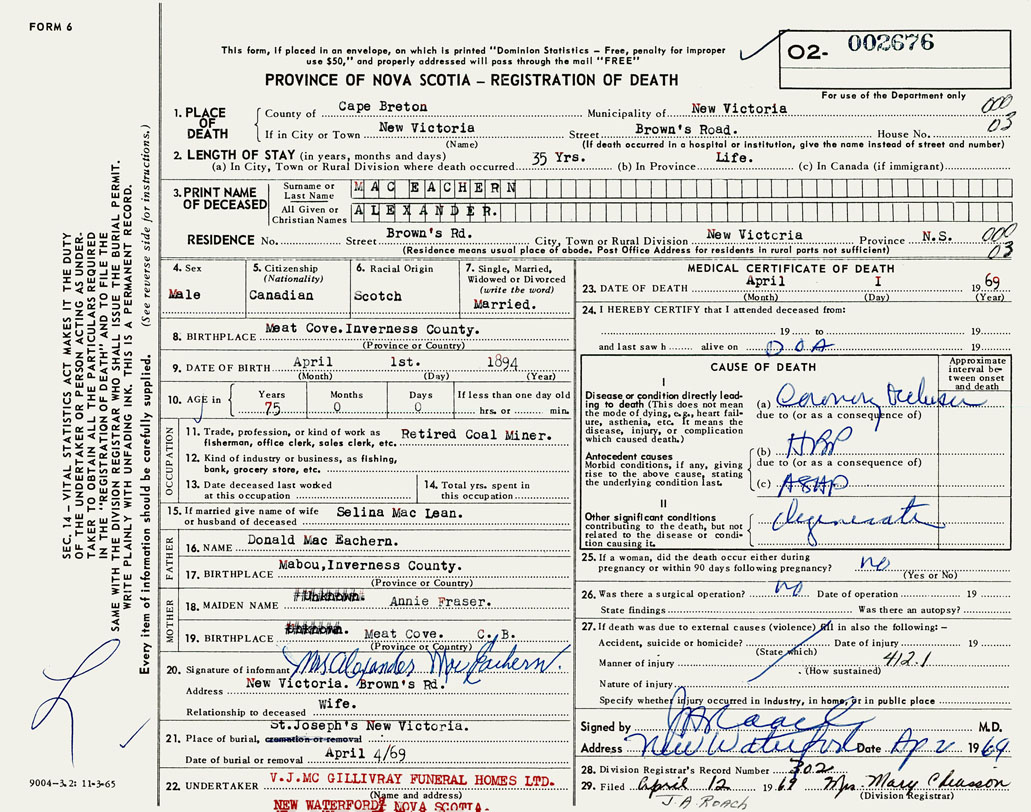 FORM 6
This form, if placed in an envelope, on which is printed "Dominion Statistics – Free, penalty for improper
use $50," and properly addressed will pass through the mail "FREE"
PROVINCE OF NOVA SCOTIA – REGISTRATION OF DEATH
O2- 002676
For use of the Department only
1. PLACE OF DEATH County of Cape Breton Municipality of New Victoria 000
If in City or Town New Victoria Street Brown's Road. House No. 03
(Name) (If death occurred in a hospital or institution, give the name instead of street and number)
2. LENGTH OF STAY (in years, months and days)
(a) In City, Town or Rural Division where death occurred 35 Yrs. (b) In Province Life. (c) In Canada (if immigrant)
3. PRINT NAME OF DECEASED Surname or Last Name MAC EACHERN
All Given or Christian Names ALEXANDER.
RESIDENCE No. Street Brown's Rd. City, Town or Rural Division New Victoria Province N.S. 000
(Residence means usual place of obode. Post Office Address for residents in rural parts not sufficient) 03
4. Sex Male
5. Citizenship (Nationality) Canadian
6. Racial Origin Scotch
7. Single, Married, Widowed or Divorced (write the word) Married.
8. BIRTHPLACE Meat Cove.Inverness County.
(Province or Country)
9. DATE OF BIRTH April 1st. 1894
(Month) (Day) (Year)
10. AGE in Years 75 Months 0 Days 0 If less than one day old hrs. or min.
OCCUPATION
11. Trade, profession, or kind of work as fisherman, office clerk, sales clerk, etc. Retired Coal Miner.
12. Kind of industry or business, as fishing, bank, grocery store, etc.
13. Date deceased last worked at this occupation
14. Total yrs. spent in this occupation
15. If married give name of wife or husband of deceased Selina Mac Lean.
FATHER
16. NAME Donald Mac Eachern.
17. BIRTHPLACE Mabou,Inverness County.
(Province or Country)
MOTHER
18. MAIDEN NAME Unknown. Annie Fraser.
19. BIRTHPLACE Unknown. Meat Cove. C.B.
(Province or Country)
20. Signature of informant Mrs Alexander Mac Eachern.
Address New Victoria. Brown's Rd.
Relationship to deceased Wife.
21. Place of burial, cremation or removal St.Joseph's New Victoria.
Date of burial or removal April 4/69
22. UNDERTAKER V.J.MC GILLIVRAY FUNERAL HOMES LTD.
(Name and address)
NEW WATERFORD, NOVA SCOTIA.
MEDICAL CERTIFICATE OF DEATH
23. DATE OF DEATH April I 1969
(Month) (Day) (Year)
24. I HEREBY CERTIFY that I attended deceased from:
19 to 19
and last saw h alive on D.O.A 19
CAUSE OF DEATH
Approximate interval between onset and death
I
Disease or condition directly leading to death (This does not mean the mode of dying, e.g., heart failure, asthenia, etc. It means the disease, injury, or complication which caused death.)
(a) Coronary Occlusion
due to (or as a consequence of)
Antecedent causes
Morbid conditions, if any, giving rise to the above cause, stating the underlying condition last.
(b) HBP
due to (or as a consequence of)
(c) ASHD
II
Other significant conditions contributing to the death, but not related to the disease or condition causing it. degenerate
25. If a woman, did the death occur either during pregnancy or within 90 days following pregnancy? no
(Yes or No)
26. Was there a surgical operation? no Date of operation 19
State findings Was there an autopsy?
27. If death was due to external causes (violence) fill in also the following: –
Accident, suicide or homicide? Date of injury 19
(State which)
Manner of injury 412.1
(How sustained)
Nature of injury
Specify whether injury occurred in industry, in home, or in public place
Signed by M.D.
Address New Waterford Date Ap 2 1969
28. Division Registrar's Record Number 302
29. Filed April 12 1969 Mrs. Mary Chiasson
(Division Registrar)
J.A ROACH
SEC. 14 – VITAL STATISTICS ACT MAKES IT THE DUTY
OF THE UNDERTAKER OR PERSON ACTING AS UNDER-
TAKER TO OBTAIN ALL THE PARTICULARS REQUIRED
IN THE "REGISTRATION OF DEATH" AND TO FILE THE
SAME WITH THE DIVISION REGISTRAR WHO SHALL ISSUE THE BURIAL PERMIT.
WRITE PLAINLY WITH UNFADING INK. THIS IS A PERMANENT RECORD.
Every item of information should be carefully supplied. (See reverse side for instructions.)
9004–3.2: 11-3-65